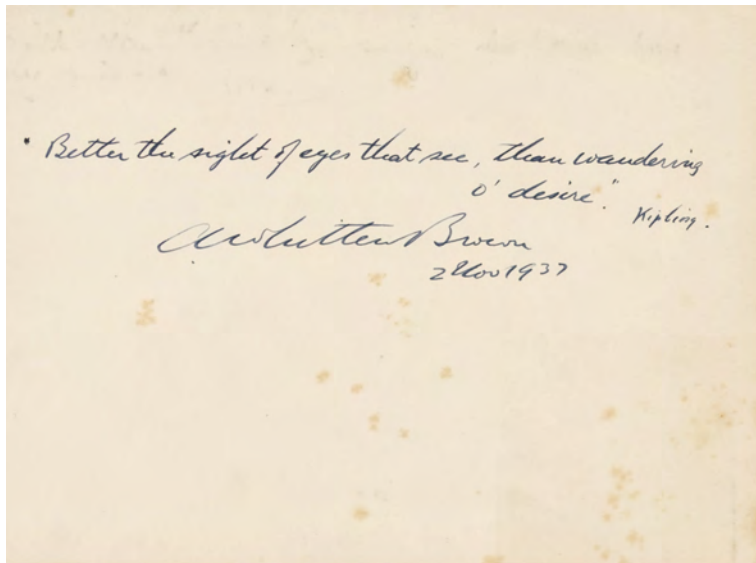 " Better the sight of eyes that see, than wandering
o' desire".
Kipling.
A Whitten Brown
2 Nov 1937